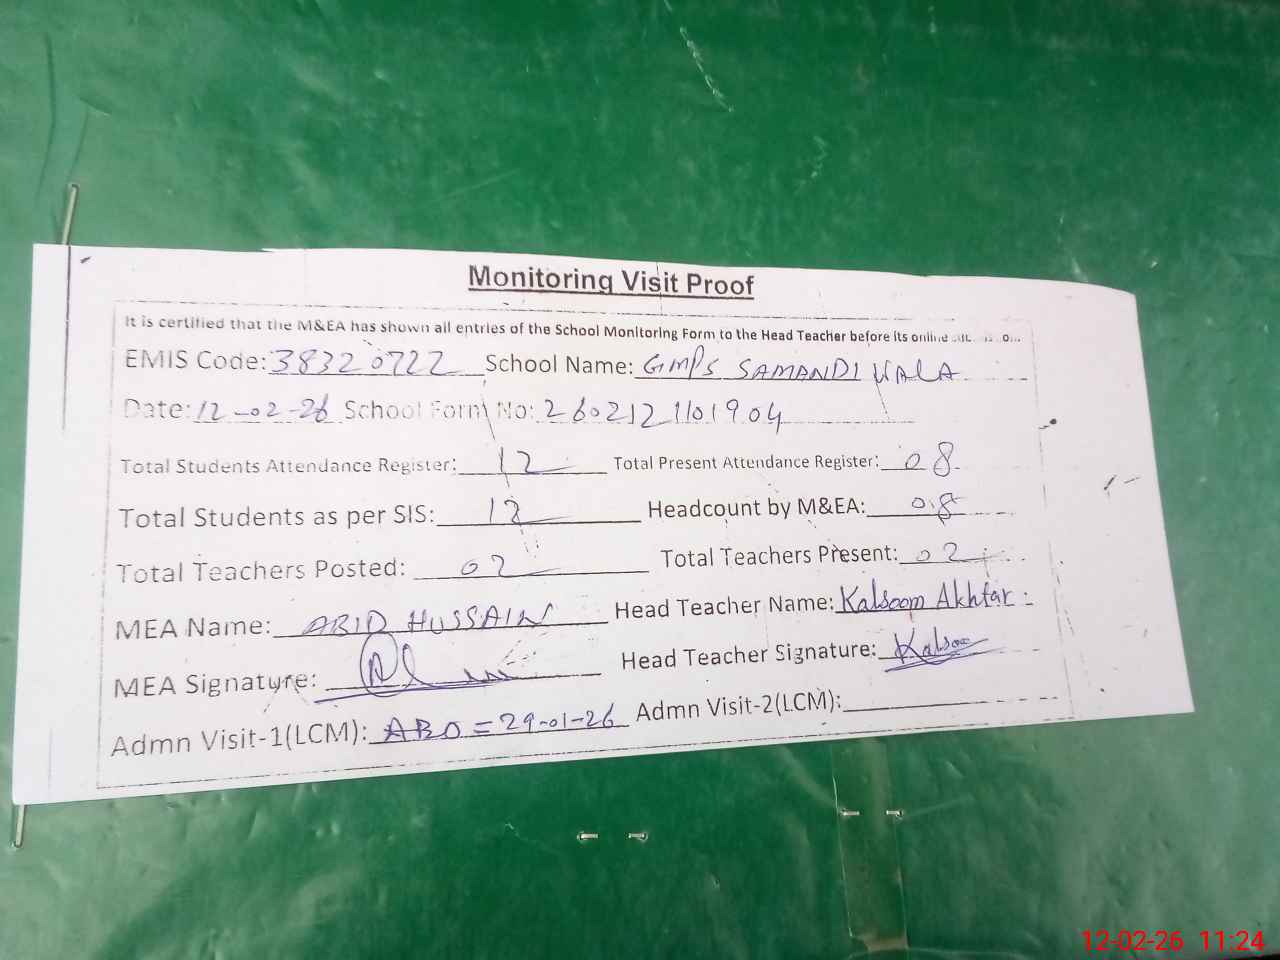 Monitoring Visit Proof
It is certified that the M&EA has shown all entries of the School Monitoring Form to the Head Teacher before its online
EMIS Code: 38320722 School Name: GMPS SAMANDI WALA
Date: 12-02-26 School Form No: 2602121101904
Total Students Attendance Register: 12 Total Present Attendance Register: 08
Total Students as per SIS: 12 Headcount by M&EA: 08
Total Teachers Posted: 02 Total Teachers Present: 02
MEA Name: ABID HUSSAIN Head Teacher Name: Kalsoom Akhtar
MEA Signature: Head Teacher Signature: Kalsoo
Admn Visit-1(LCM): AEO = 29-01-26 Admn Visit-2(LCM):
12-02-26 11:24